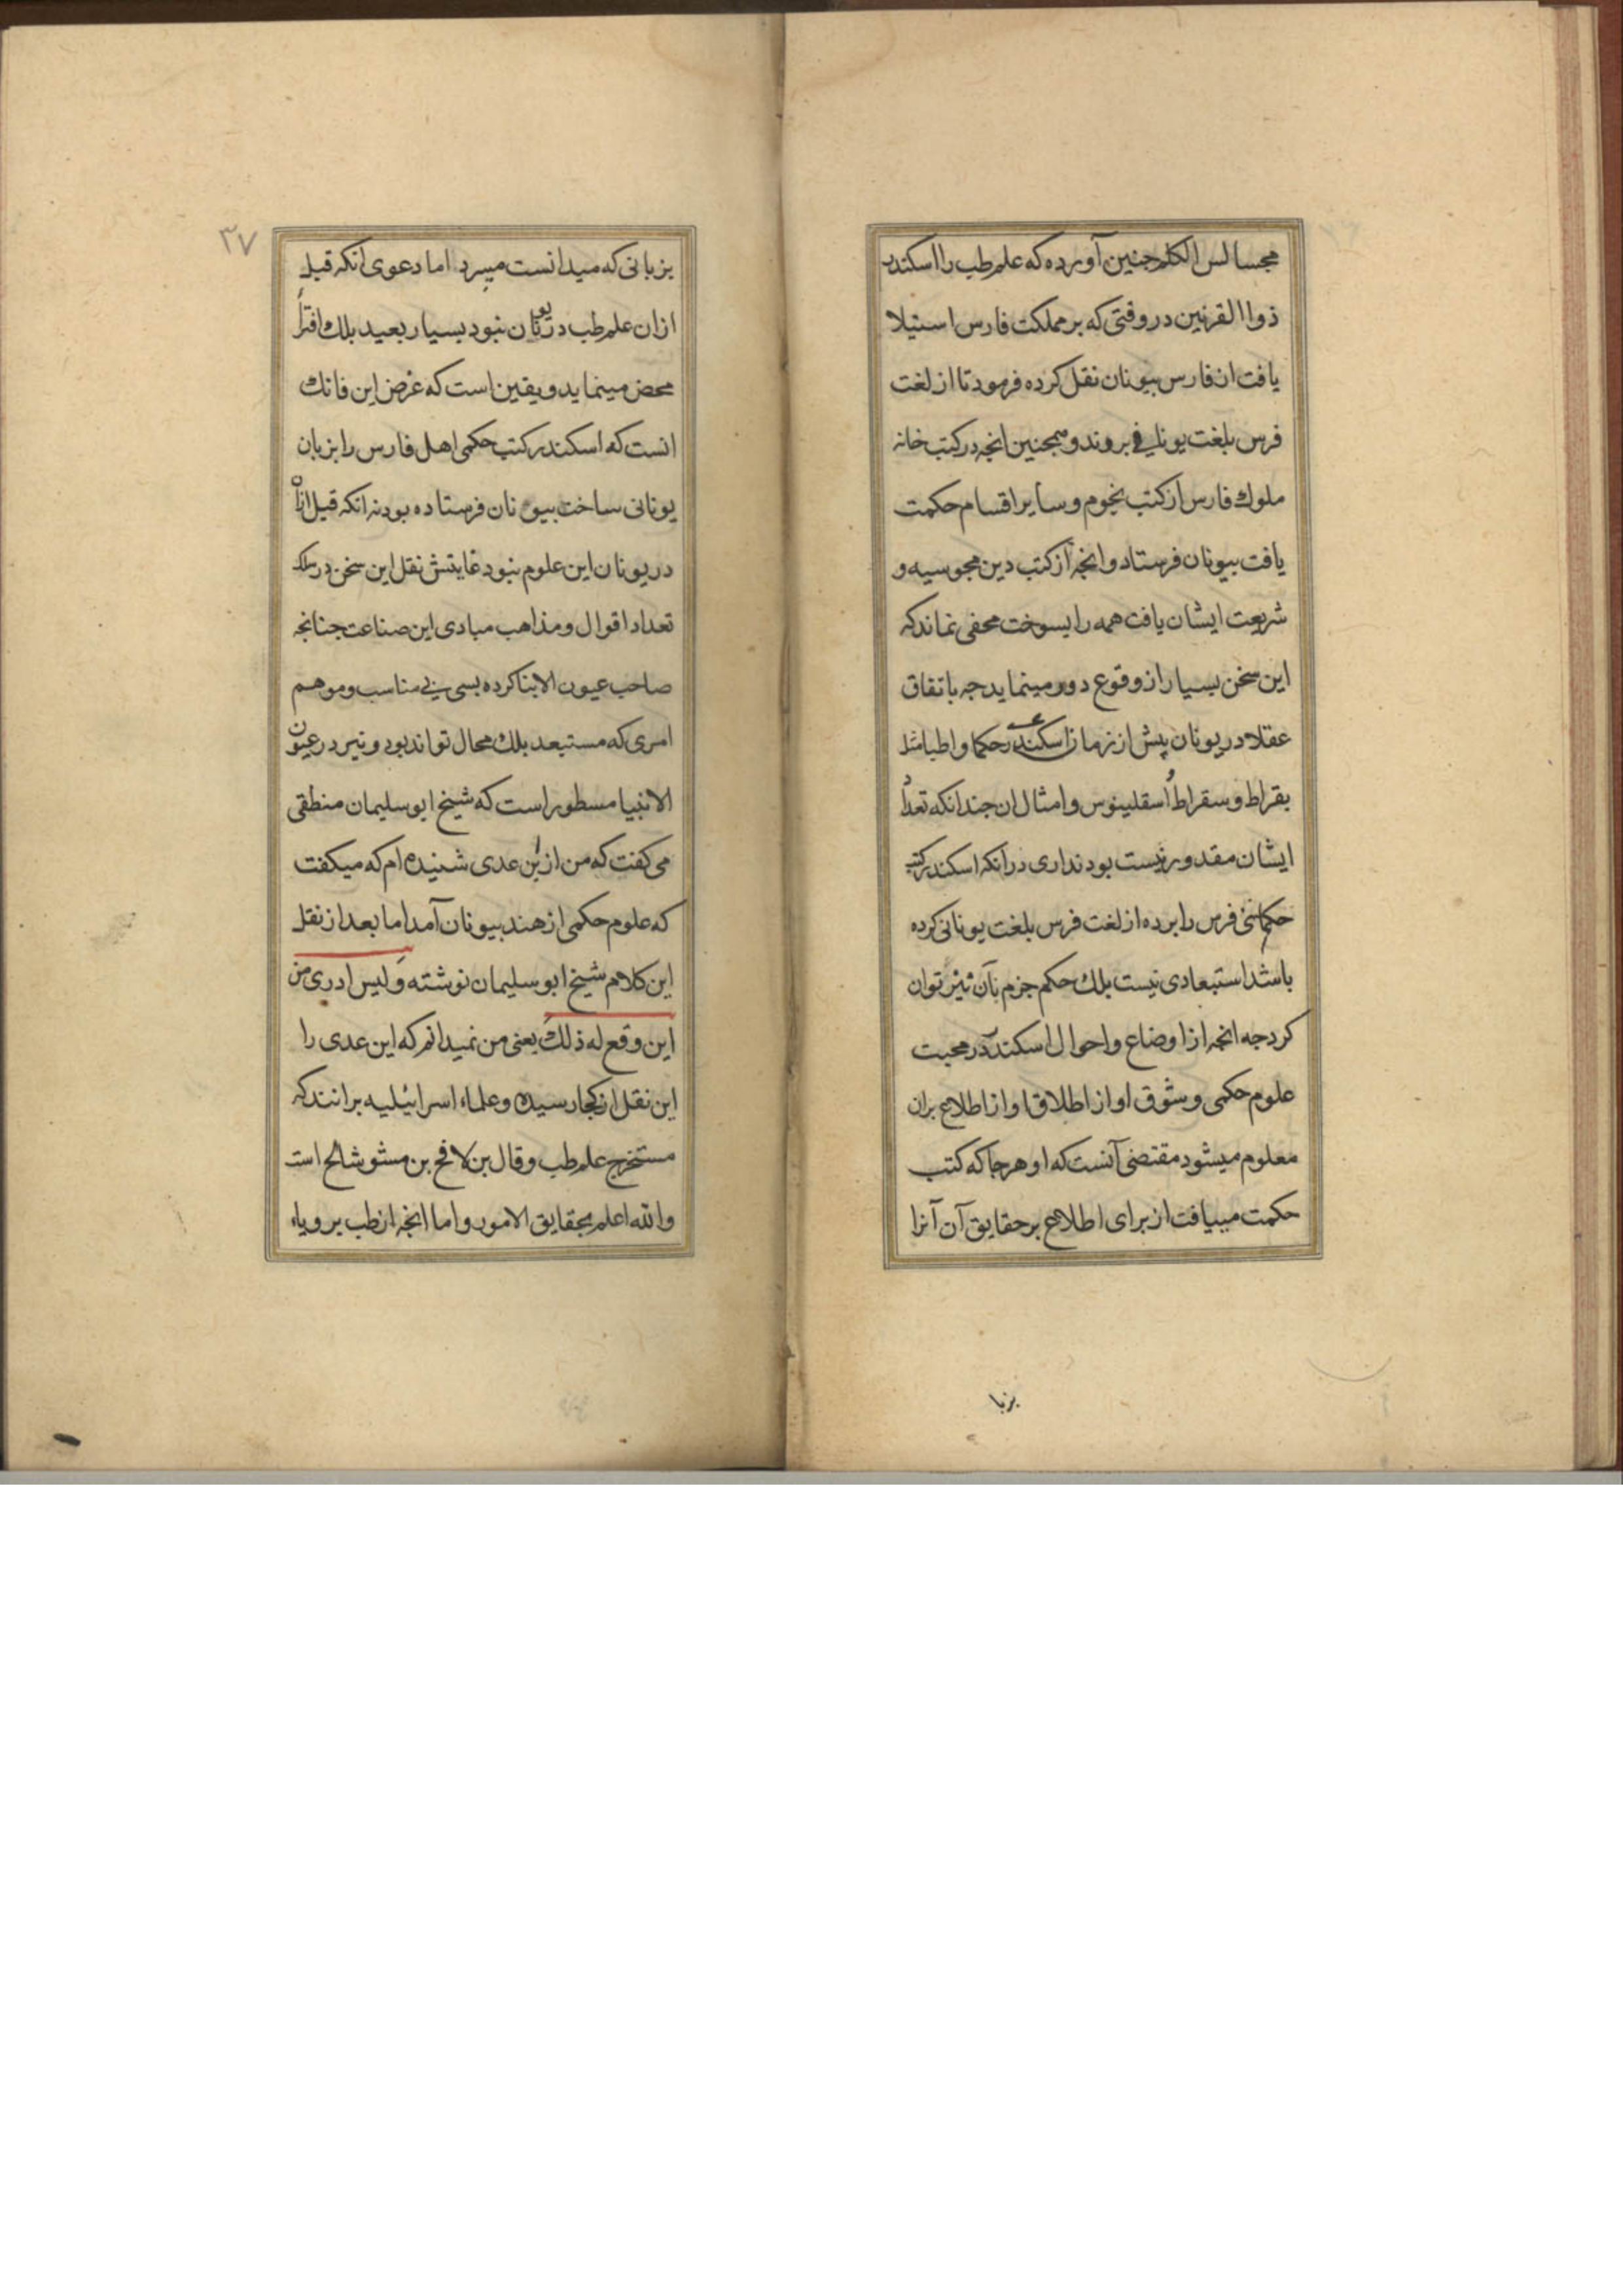 مجسالس الکلم جنین آورده که علم طب را اسکندر
ذوا القرنین در وقتی که بر مملکت فارس استیلا
یافت ان فارس بیونان نقل کرده فرمود تا از لغت
فرس بلغت یونانی بروند و همجنین انجه در کتب خانه
ملوك فارس از کتب نجوم و سایر اقسام حکمت
یافت بیونان فرستاد و انجه از کتب دین مجوسیه و
شریعت ایشان یافت همه را بسوخت مخفی نماند که
این سخن بسیار از وقوع دور مینماید جه باتفاق
عقلاء در یونان پیش از زمان اسکندر حکما و اطبا مثل
بقراط و سقراط و اسقلینوس و امثال ان جندانکه تعداد
ایشان مقدور نیست بود نداری در آنکه اسکندر کتب
حکمائی فرس را برده از لغت فرس بلغت یونانی کرده
باشد استبعادی نیست بلك حکم جزم بآن نیز توان
کرد جه انجه از اوضاع و احوال اسکندر در محبت
علوم حکمی و شوق او از اطلاق او از اطلاع بران
معلوم میشود مقتضی آنست که او هر جا که کتب
حکمت مییافت از برای اطلاع بر حقایق آن آنرا
بزبا
۳۷
بزبانی که میدانست میبرد اما دعوی آنکه قبل
ازان علم طب در یونان نبود بسیار بعید بلك افترا
محض مینماید و یقین است که غرض این قائل
انست که اسکندر کتب حکمی اهل فارس را بزبان
یونانی ساخت بیونان فرستاده بود نه انکه قبل ازان
در یونان این علوم نبود غایتش نقل این سخن در سلك
تعداد اقوال و مذاهب مبادی این صناعت جنانجه
صاحب عیون الابنا کرده بسی بی مناسب و موهم
امری که مستبعد بلك محال تواند بود و نیز در عیون
الانبیا مسطور است که شیخ ابو سلیمان منطقی
می کفت که من از بن عدی شنیده ام که میکفت
که علوم حکمی از هند بیونان آمد اما بعد از نقل
این کلام شیخ ابو سلیمان نوشته و لیس ادری من
این وقع له ذلك یعنی من نمیدانم که این عدی را
این نقل از کجا رسیده و علماء اسرائیلیه برانند که
مستخرج علم طب وقال بن لافح بن مشوشالح است
والله اعلم بحقایق الامور و اما انجه از طب برویاء